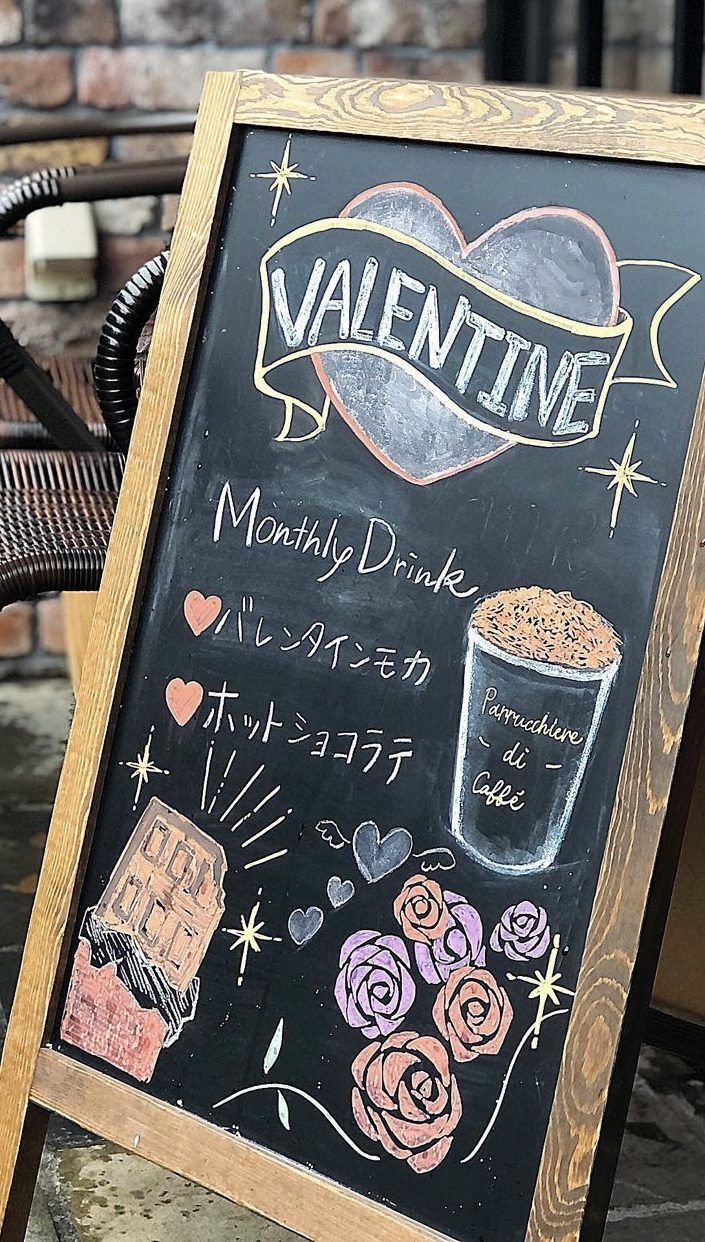 VALENTINE
Monthly Drink
バレンタインモカ
ホットショコラテ
Parrucchiere
di
Caffé